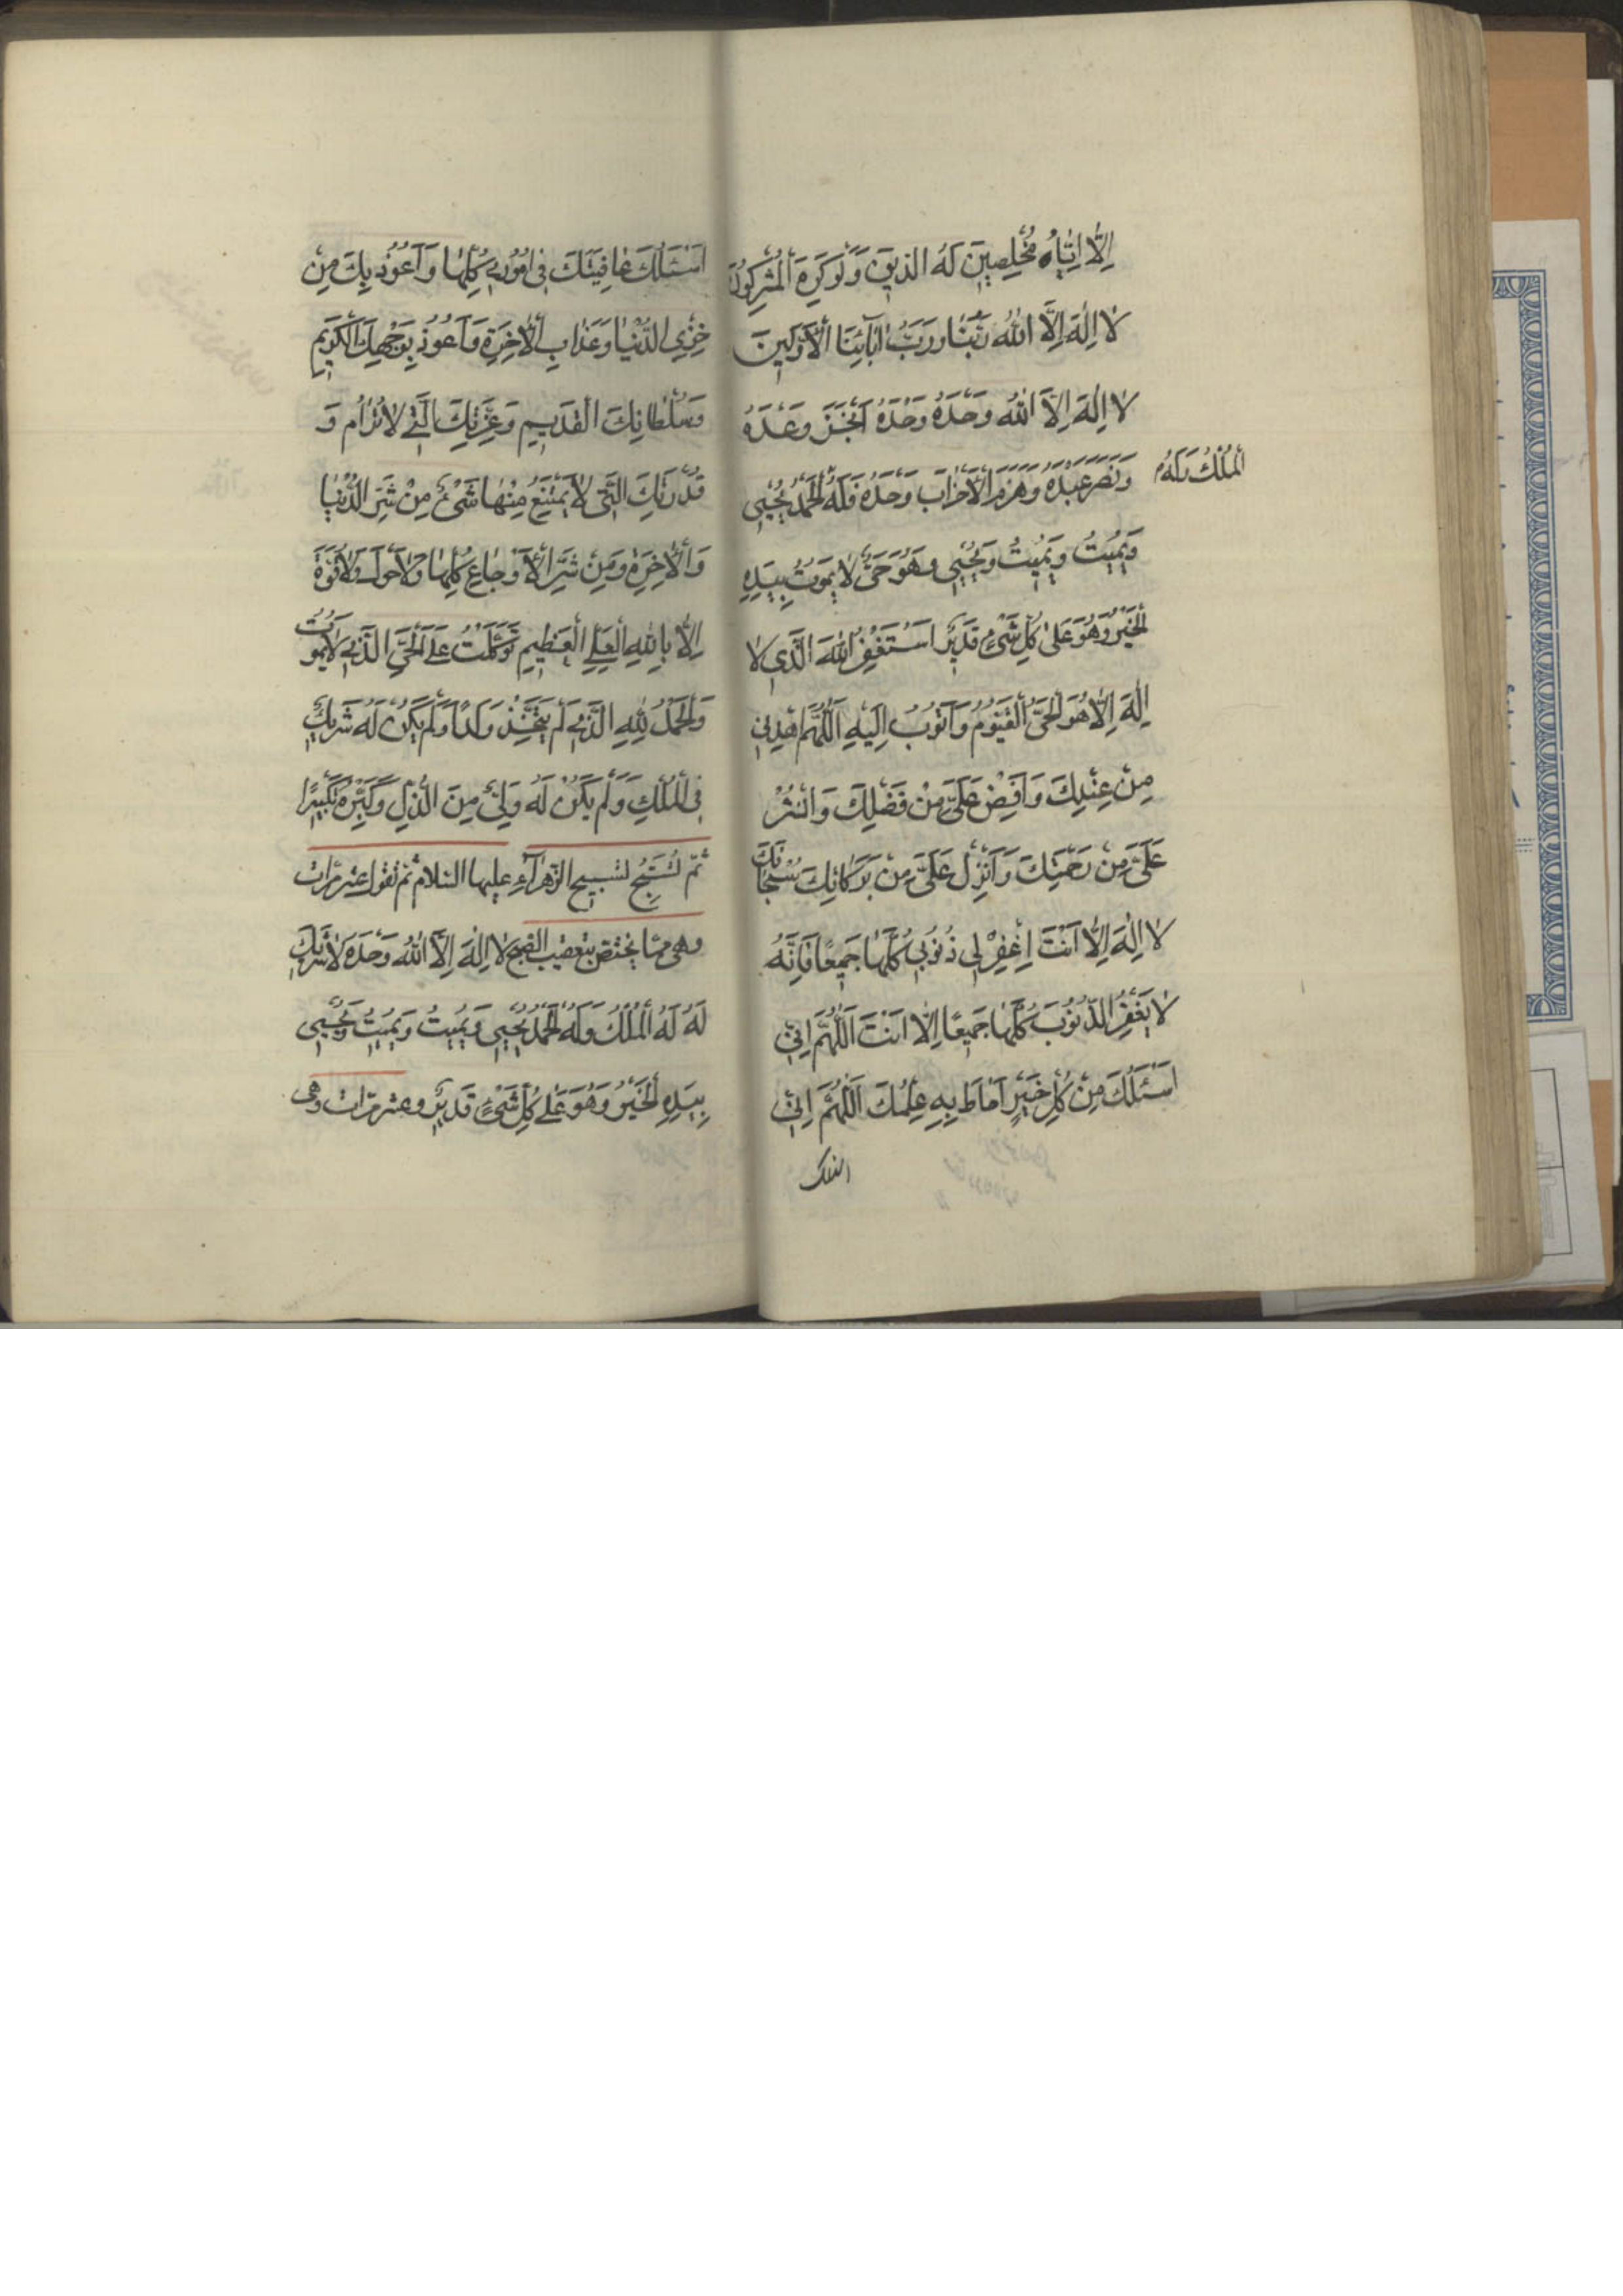 اِلَّا اِيَّاهُ مُخْلِصِينَ لَهُ الدّينَ وَلَوْ كَرِهَ الْمُشْرِكُونَ
لا اِلٰهَ اِلَّا اللّٰهُ رَبُّنَا وَرَبُّ اٰبَآئِنَا الْاَوَّلِينَ
لا اِلٰهَ اِلَّا اللّٰهُ وَحْدَهُ وَحْدَهُ وَحْدَهُ اَنْجَزَ وَعْدَهُ
وَنَصَرَ عَبْدَهُ وَهَزَمَ الْاَحْزَابَ وَحْدَهُ فَلَهُ الْحَمْدُ يُحْيِي
الْمُلْكُ وَلَهُ
وَيُمِيتُ وَيُمِيتُ وَيُحْيِي وَهُوَ حَيٌّ لا يَمُوتُ بِيَدِهِ
الْخَيْرُ وَهُوَ عَلىٰ كُلِّ شَيْءٍ قَدِيرٌ اَسْتَغْفِرُ اللّٰهَ الَّذِي لا
اِلٰهَ اِلَّا هُوَ الْحَيُّ الْقَيُّومُ وَاَتُوبُ اِلَيْهِ اَللّٰهُمَّ اهْدِنِي
مِنْ عِنْدِكَ وَاَفِضْ عَلَيَّ مِنْ فَضْلِكَ وَانْشُرْ
عَلَيَّ مِنْ رَحْمَتِكَ وَاَنْزِلْ عَلَيَّ مِنْ بَرَكَاتِكَ سُبْحَانَكَ
لا اِلٰهَ اِلَّا اَنْتَ اِغْفِرْ لِي ذُنُوبِي كُلَّهَا جَمِيعًا فَاِنَّهُ
لا يَغْفِرُ الذُّنُوبَ كُلَّهَا جَمِيعًا اِلَّا اَنْتَ اَللّٰهُمَّ اِنِّي
اَسْئَلُكَ مِنْ كُلِّ خَيْرٍ اَحَاطَ بِهِ عِلْمُكَ اَللّٰهُمَّ اِنِّي
اسئلك
اَسْئَلُكَ عَافِيَتَكَ فِي اُمُورِي كُلِّهَا وَاَعُوذُ بِكَ مِنْ
خِزْيِ الدُّنْيَا وَعَذَابِ الْاٰخِرَةِ وَاَعُوذُ بِوَجْهِكَ الْكَرِيمِ
وَسُلْطَانِكَ الْقَدِيمِ وَعِزَّتِكَ الَّتِي لا تُرَامُ وَ
قُدْرَتِكَ الَّتِي لا يَمْتَنِعُ مِنْهَا شَيْءٌ مِنْ شَرِّ الدُّنْيَا
وَالْاٰخِرَةِ وَمِنْ شَرِّ الْاَوْجَاعِ كُلِّهَا وَلا حَوْلَ وَلا قُوَّةَ
اِلَّا بِاللّٰهِ الْعَلِيِّ الْعَظِيمِ تَوَكَّلْتُ عَلَى الْحَيِّ الَّذِي لا يَمُوتُ
وَالْحَمْدُ لِلّٰهِ الَّذِي لَمْ يَتَّخِذْ وَلَدًا وَلَمْ يَكُنْ لَهُ شَرِيكٌ
فِي الْمُلْكِ وَلَمْ يَكُنْ لَهُ وَلِيٌّ مِنَ الذُّلِّ وَكَبِّرْهُ تَكْبِيرًا
ثُمَّ تُسَبِّحُ تسبيح الزّهرآءِ عليها السّلام ثم تقول عشر مرّات
وهى ممّا يختص بتعقيب الصبح لا اِلٰهَ اِلَّا اللّٰهُ وَحْدَهُ لا شَرِيكَ
لَهُ لَهُ الْمُلْكُ وَلَهُ الْحَمْدُ يُحْيِي وَيُمِيتُ وَيُمِيتُ وَيُحْيِي
بِيَدِهِ الْخَيْرُ وَهُوَ عَلىٰ كُلِّ شَيْءٍ قَدِيرٌ وعشر مرّات وهى